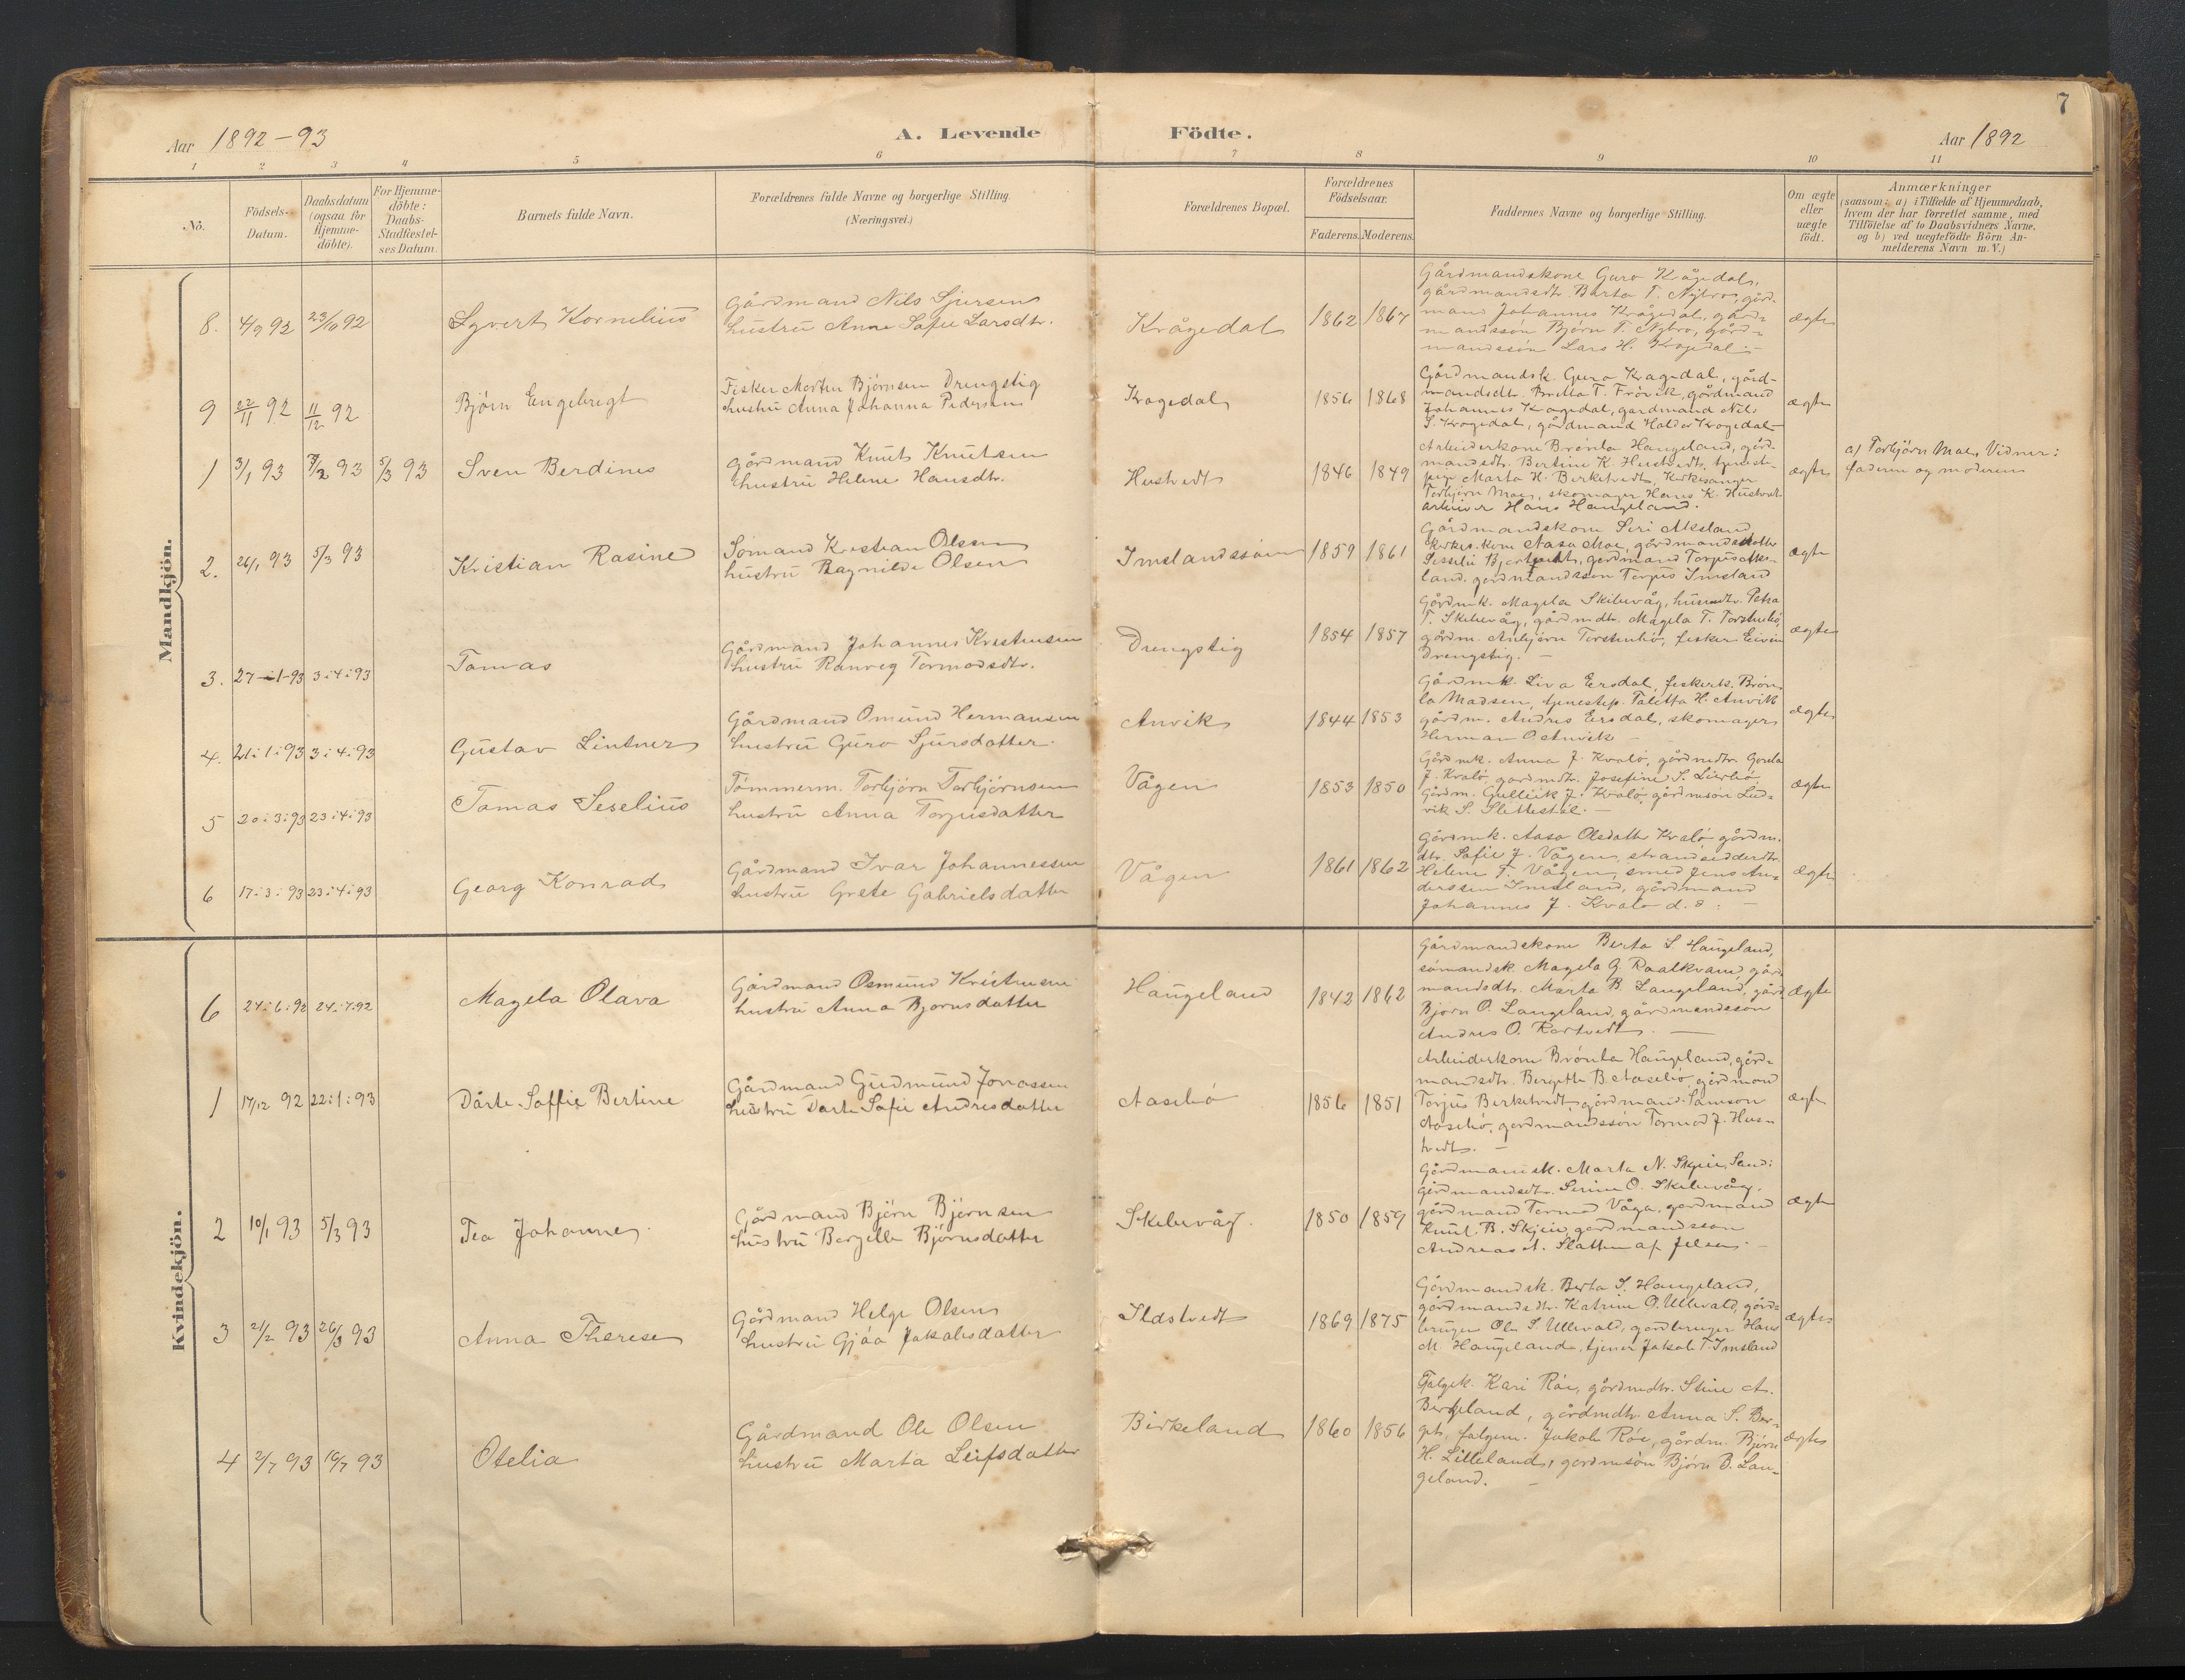 7
Aar 1892-93
A. Levende Födte.
Aar 1892
1 2 3 4 5 6 7 8 9 10 11
No.
Födsels-Datum.
Daabsdatum (ogsaa for Hjemme-döbte).
For Hjemme-döbte: Daabs-Stadfæstel-ses Datum.
Barnets fulde Navn.
Forældrenes fulde Navne og borgerlige Stilling. (Næringsvei.)
Forældrenes Bopæl.
Forældrenes Födselsaar.
Faderens. Moderens.
Faddernes Navne og borgerlige Stilling.
Om ægte eller uægte födt.
Anmærkninger
(saasom: a) i Tilfælde af Hjemmedaab,
hvem der har forrettet samme, med
Tilföielse af to Daabsvidners Navne,
og b) ved uægtefödte Börn An-
melderens Navn m.V.)
Mandkjön.
8. 4/9 92 23/10 92 Syvert Kornelius
Gårdmand Nils Sjursen
hustru Anna Sofie Larsdtr.
Krågedal 1862 1867
Gårdmandskone Guro Krågedal,
gårdmandsdtr. Berta T. Nybro, gård-
mand Johannes Krågedal, gård-
mandssön Björn T. Nybro, gård-
mandssön Lars H. Krogedal.
ægte
9 22/11 92 11/12 92 Björn Engebregt
Fisker Morten Björnsen Drengstig
hustru Anna Johanna Pedersen
Krogedal 1856 1868
Gårdmandsk. Guro Kragedal, gård-
mandsdtr. T. Frövik, gårdmand
Johannes Kragedal, gardmand Nils
S. Krogedal, gårdmand Halder Krogedal
ægte
1 3/1 93 7/2 93 5/3 93 Sven Berdines
Gårdmand Knut Knutsen
hustru Helene Hansdtr.
Hustvedt 1846 1849
Arbeiderkone Brönla Haugeland, gård-
mandsdtr. Bertine K. Hustvedt, tjenest-
pige Marta H. Birketvedt, Kirkesanger
Torbjörn Moe, skomager Hans K. Hustvedt
arbeider Hans Haugeland.
ægte
a) Torbjörn Moe, Vidner:
faderen og moderen
2. 26/1 93 5/3 93 Kristian Rasine
Sömand Kristian Olsen
hustru Ragnilde Olsen
Imslandssjöen 1859 1861
Gårdmandskone Siri Aksland,
kirkes. kone Aasa Moe, gårdmandsdatter
gordmand Torpus Aks-
land, gordmandssön Torpus Imsland
ægte
3. 27-1-93 3:4:93 Tomas
Gårdmand Johannes Kristensen
hustru Ranveg Tormodsdtr.
Drengstig 1854 1857
Gårdmk. Magela Skibevåg, husmdtr. Petra
T. Skibevåg, gårdmdtr. Magela T. Torstenbö,
gårdm. Anbjörn Torstenbö, fisker Eivin
Drengstig.
ægte
4. 21:1:93 3:4:93 Gustav Lintner
Gårdmand Omund Hermansen
hustru Guro Sjursdatter
Anvik 1844 1853
Gårdmk. Liva Ersdal, fiskerk. Brön-
la Madsen, tjenestep. Taletta H. Anvik
gårdm. Andres Ersdal, skomager
Herman O. Anvik
ægte
5 20:3:93 23:4:93 Tomas Seselius
Tömmerm. Torbjörn Torbjörnsen
hustru Anna Torpusdatter
Vågen 1853 1850
Gårdmk. Anna J. Kvalö, gårdmdtr. Gonla
J. Kvalö, gardmdtr. Josefine S.
Gårdm. Gulleik J. Kvalö, gårdmsön Lud-
vik S. Slettestöl.
ægte
6 17:3:93 23:4:93 Georg Konrad
Gårdmand Ivar Johannessen
hustru Grete Gabrielsdatter
Vågen 1861 1862
Gårdmk. Aasa Olsdatter Kvalö, gårdm.
dtr. Sofie J. Vågen, strandsidderdtr.
Helene T. Vågen, smed Jens An-
derssen Imsland, gårdmand
Johannes J. Kvalö d.s.
ægte
Kvindekjön.
6 24:6:92 24:7:92 Magela Olava
Gårdmand Osmund Kristensen
hustru Anna Bjornsdatter
Haugeland 1842 1862
Gårdmandskone Berta S. Haugeland,
sömandsk. Magela G. Raalkvam, gård-
mandsdtr. Marta B. Langeland, gårdm.
Bjorn O. Langeland, gårdmandssön
Andres O. Rortvedt.
ægte
1 17/12 92 22:1:93 Dårte Soffie Bertine
Gårdmand Gudmund Jonassen
hustru Dorte Sofie Andresdatter
Aasebö 1856 1851
Arbeiderkone Brönla Haugeland, gård-
mandsdtr. Bergette B. Aasebö, gårdmand
Torjus Birketvedt, gårdmand Samson
Aasebö, gordmandssön Tormod J. Hus-
tvedt.
ægte
2 10/1 93 5/3 93 Tea Johanne
Gårdmand Björn Björnsen
hustru Bergette Björnsdatter
Skibevåg. 1850 1859
Gårdmandsk. Marta N. Skjeie, Sand:
gårdmandsdtr. Serine O. Skibevåg,
gårdmand Tormod Våga, gordmand
Knut B. Skjeie, gordmandssön
Andreas A. Slatten af Jelsen.
ægte
3 21/2 93 26/3 93 Anna Therese
Gårdmand Helge Olsen
hustru Gjöa Jakobsdatter
Ilastvedt 1869 1875
Gårdmandsk. Berta S. Haugeland,
gårdmandsdtr. Katrine O. Ullevald, gård-
bruger Ole S. Ullevald, gordbruger Hans
M. Haugeland, tjener Jakob T. Imsland
ægte
4 2/7 93 16/7 93 Otelia
Gårdmand Ole Olsen
hustru Marta Leifsdatter
Birkeland 1860 1856
Falgek. Kari Röe, gårdmdtr. Stine A.
Bergeland, gårdmdtr. Anna S. Ber-
ge, falgem. Jakob Röe, gårdm. Björn
H. Lilleland, gordmsön Björn B. Lan-
geland.
ægte